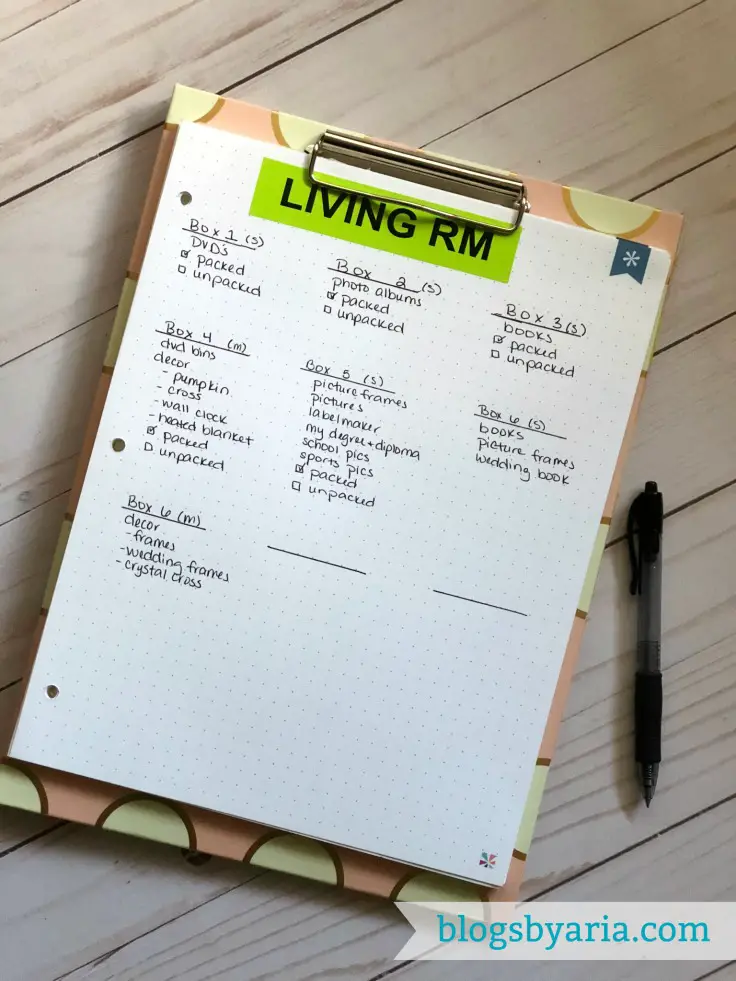 LIVING RM
Box 1 (s)
DVD's
☑ packed
☐ unpacked
Box 2 (s)
photo albums
☑ packed
☐ unpacked
Box 3 (s)
books
☑ packed
☐ unpacked
Box 4 (m)
dvd bins
decor
- pumpkin
- cross
- wall clock
- heated blanket
☑ packed
☐ unpacked
Box 5 (s)
picture frames
pictures
labelmaker
my degree + diploma
school pics
sports pics
☑ packed
☐ unpacked
Box 6 (s)
books
picture frames
wedding book
Box 6 (m)
decor
- frames
- wedding frames
- crystal cross
blogsbyaria.com